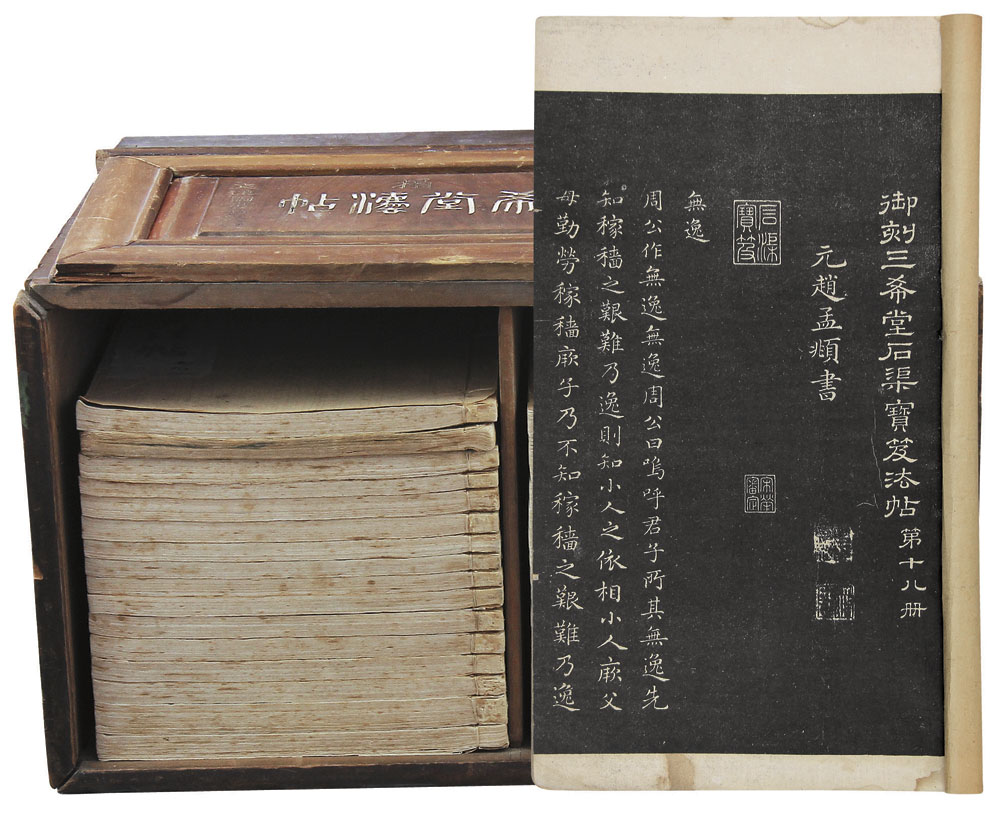 希堂灋帖
御刻三希堂石渠寶笈法帖第十八冊
元趙孟頫書
石渠寶笈
宋犖審定
無逸
周公作無逸無逸周公曰嗚呼君子所其無逸先
知稼穡之艱難乃逸則知小人之依相小人厥父
母勤勞稼穡厥子乃不知稼穡之艱難乃逸